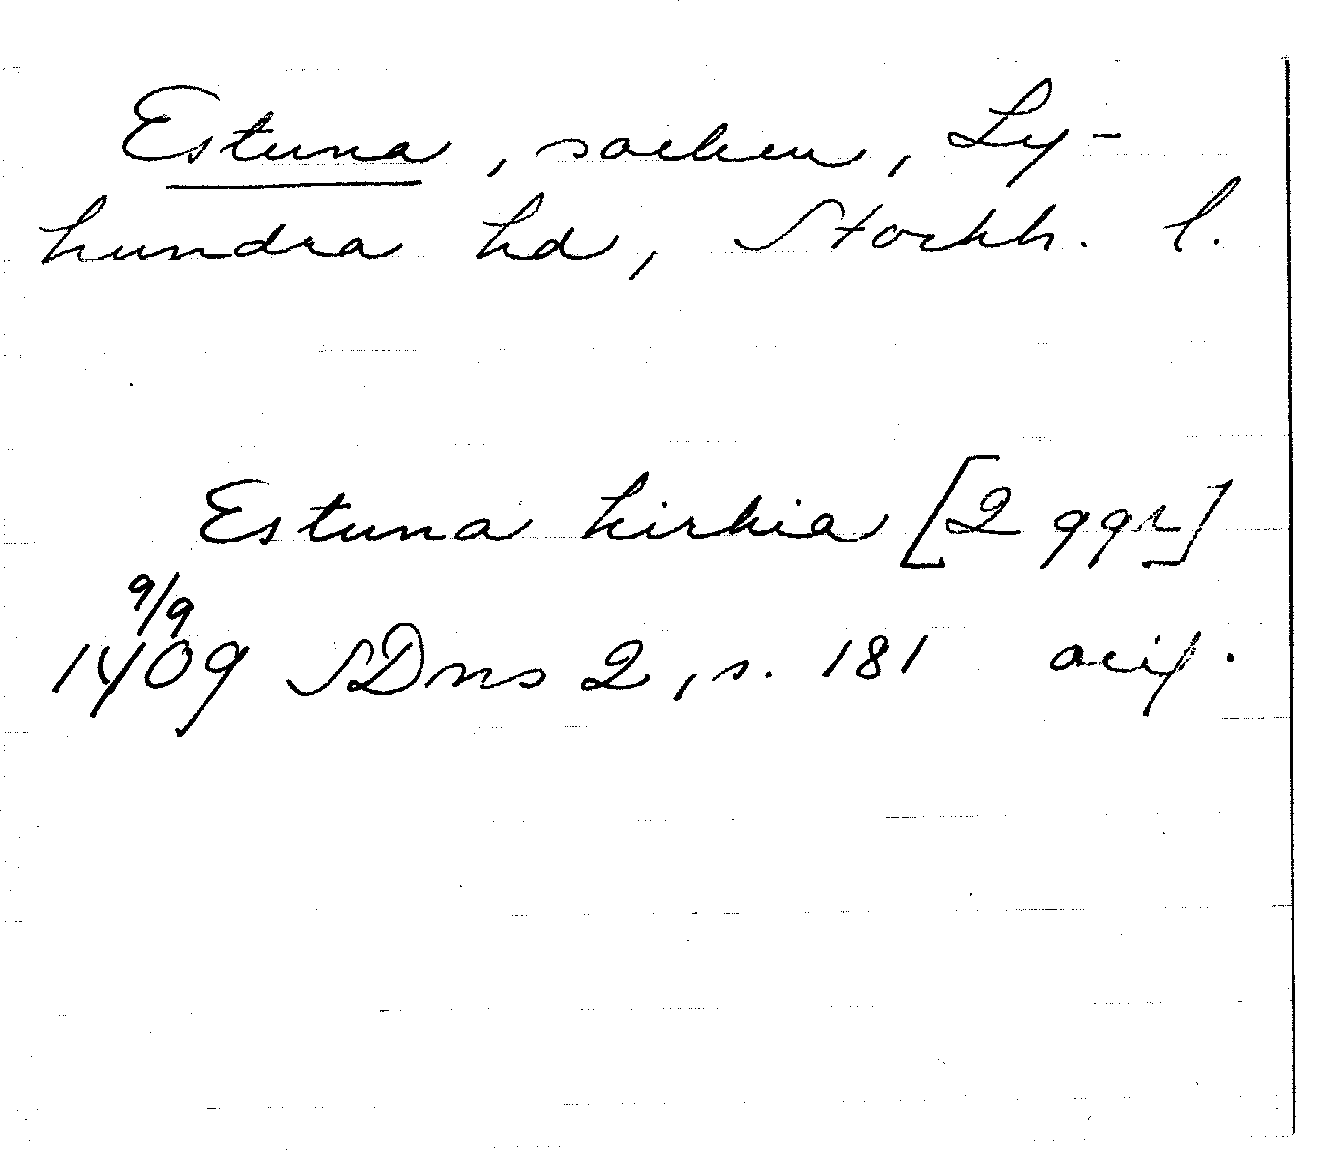 Estuna, socken, Ly-
hundra hd, Stockh. l.
Estuna kirkia [2 ggr]
9/9
1409 SDns 2, s. 181 avif.